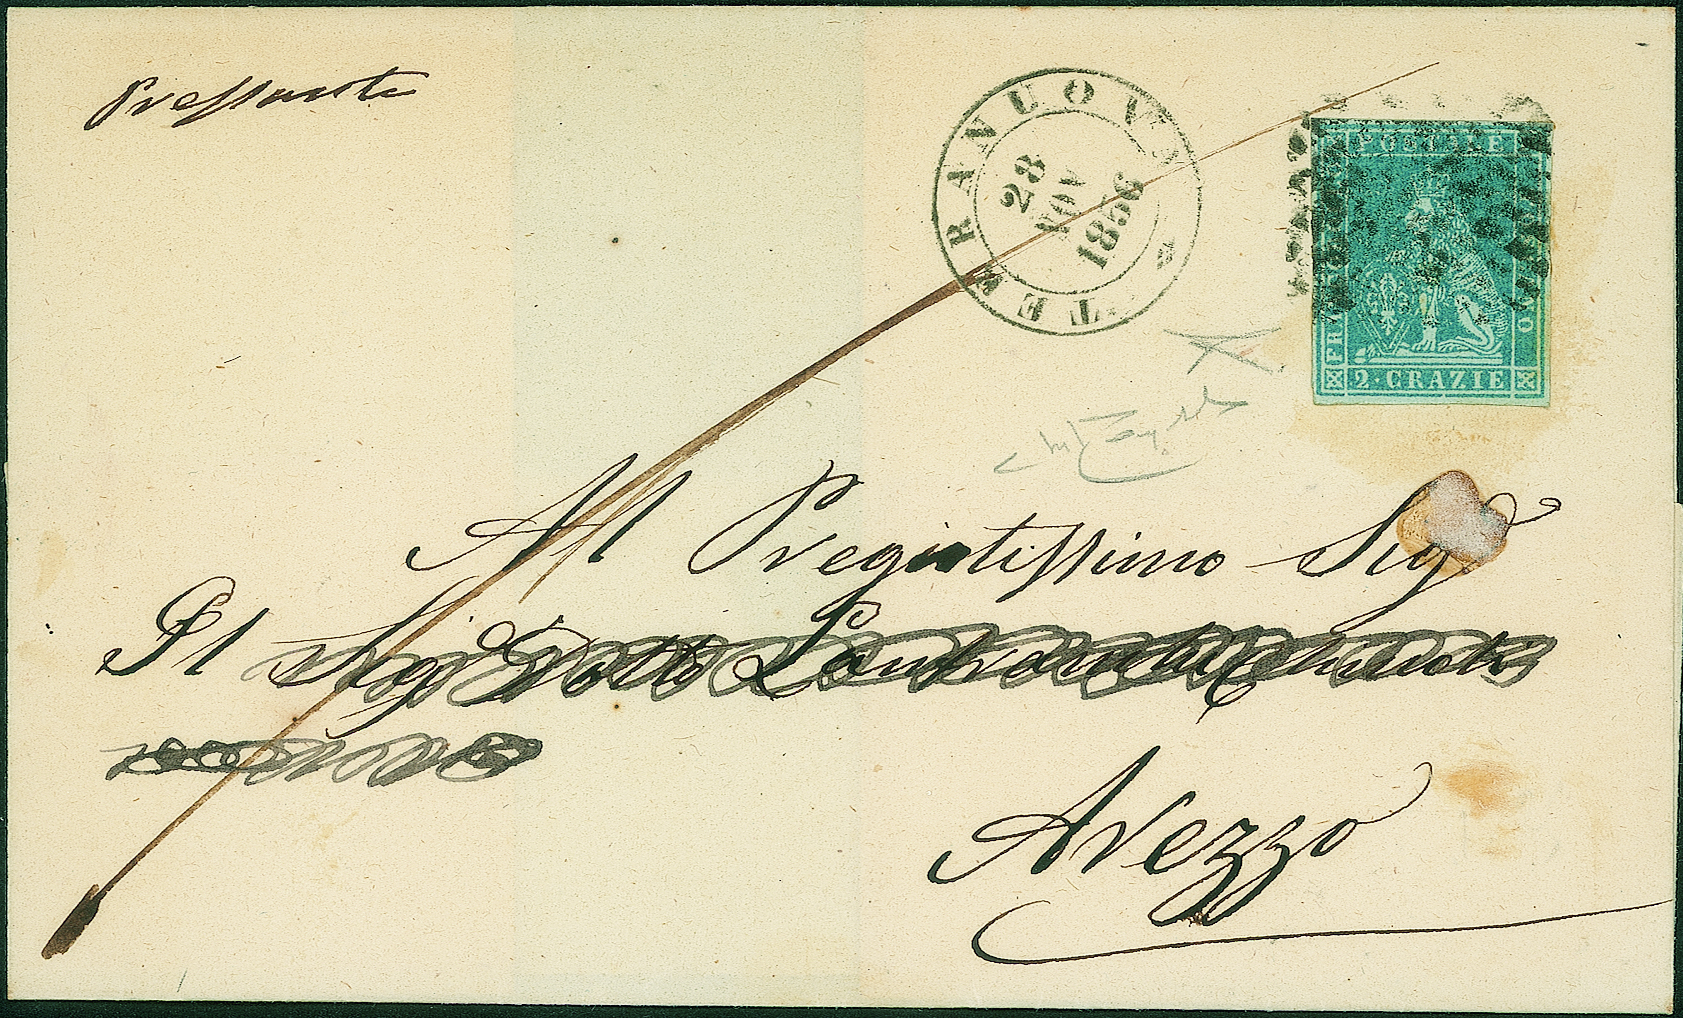 Pressante
TERRANUOVA
28
NOV
1856
POSTALE
FR
2 · CRAZIE
Al Pregiatissimo Sig
Il Sig Dotto
Arezzo